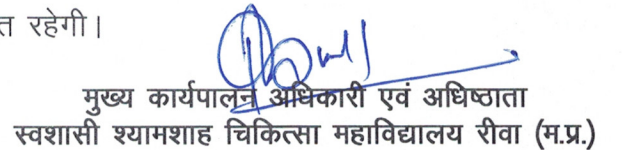 त रहेगी।
मुख्य कार्यपालन अधिकारी एवं अधिष्ठाता
स्वशासी श्यामशाह चिकित्सा महाविद्यालय रीवा (म.प्र.)